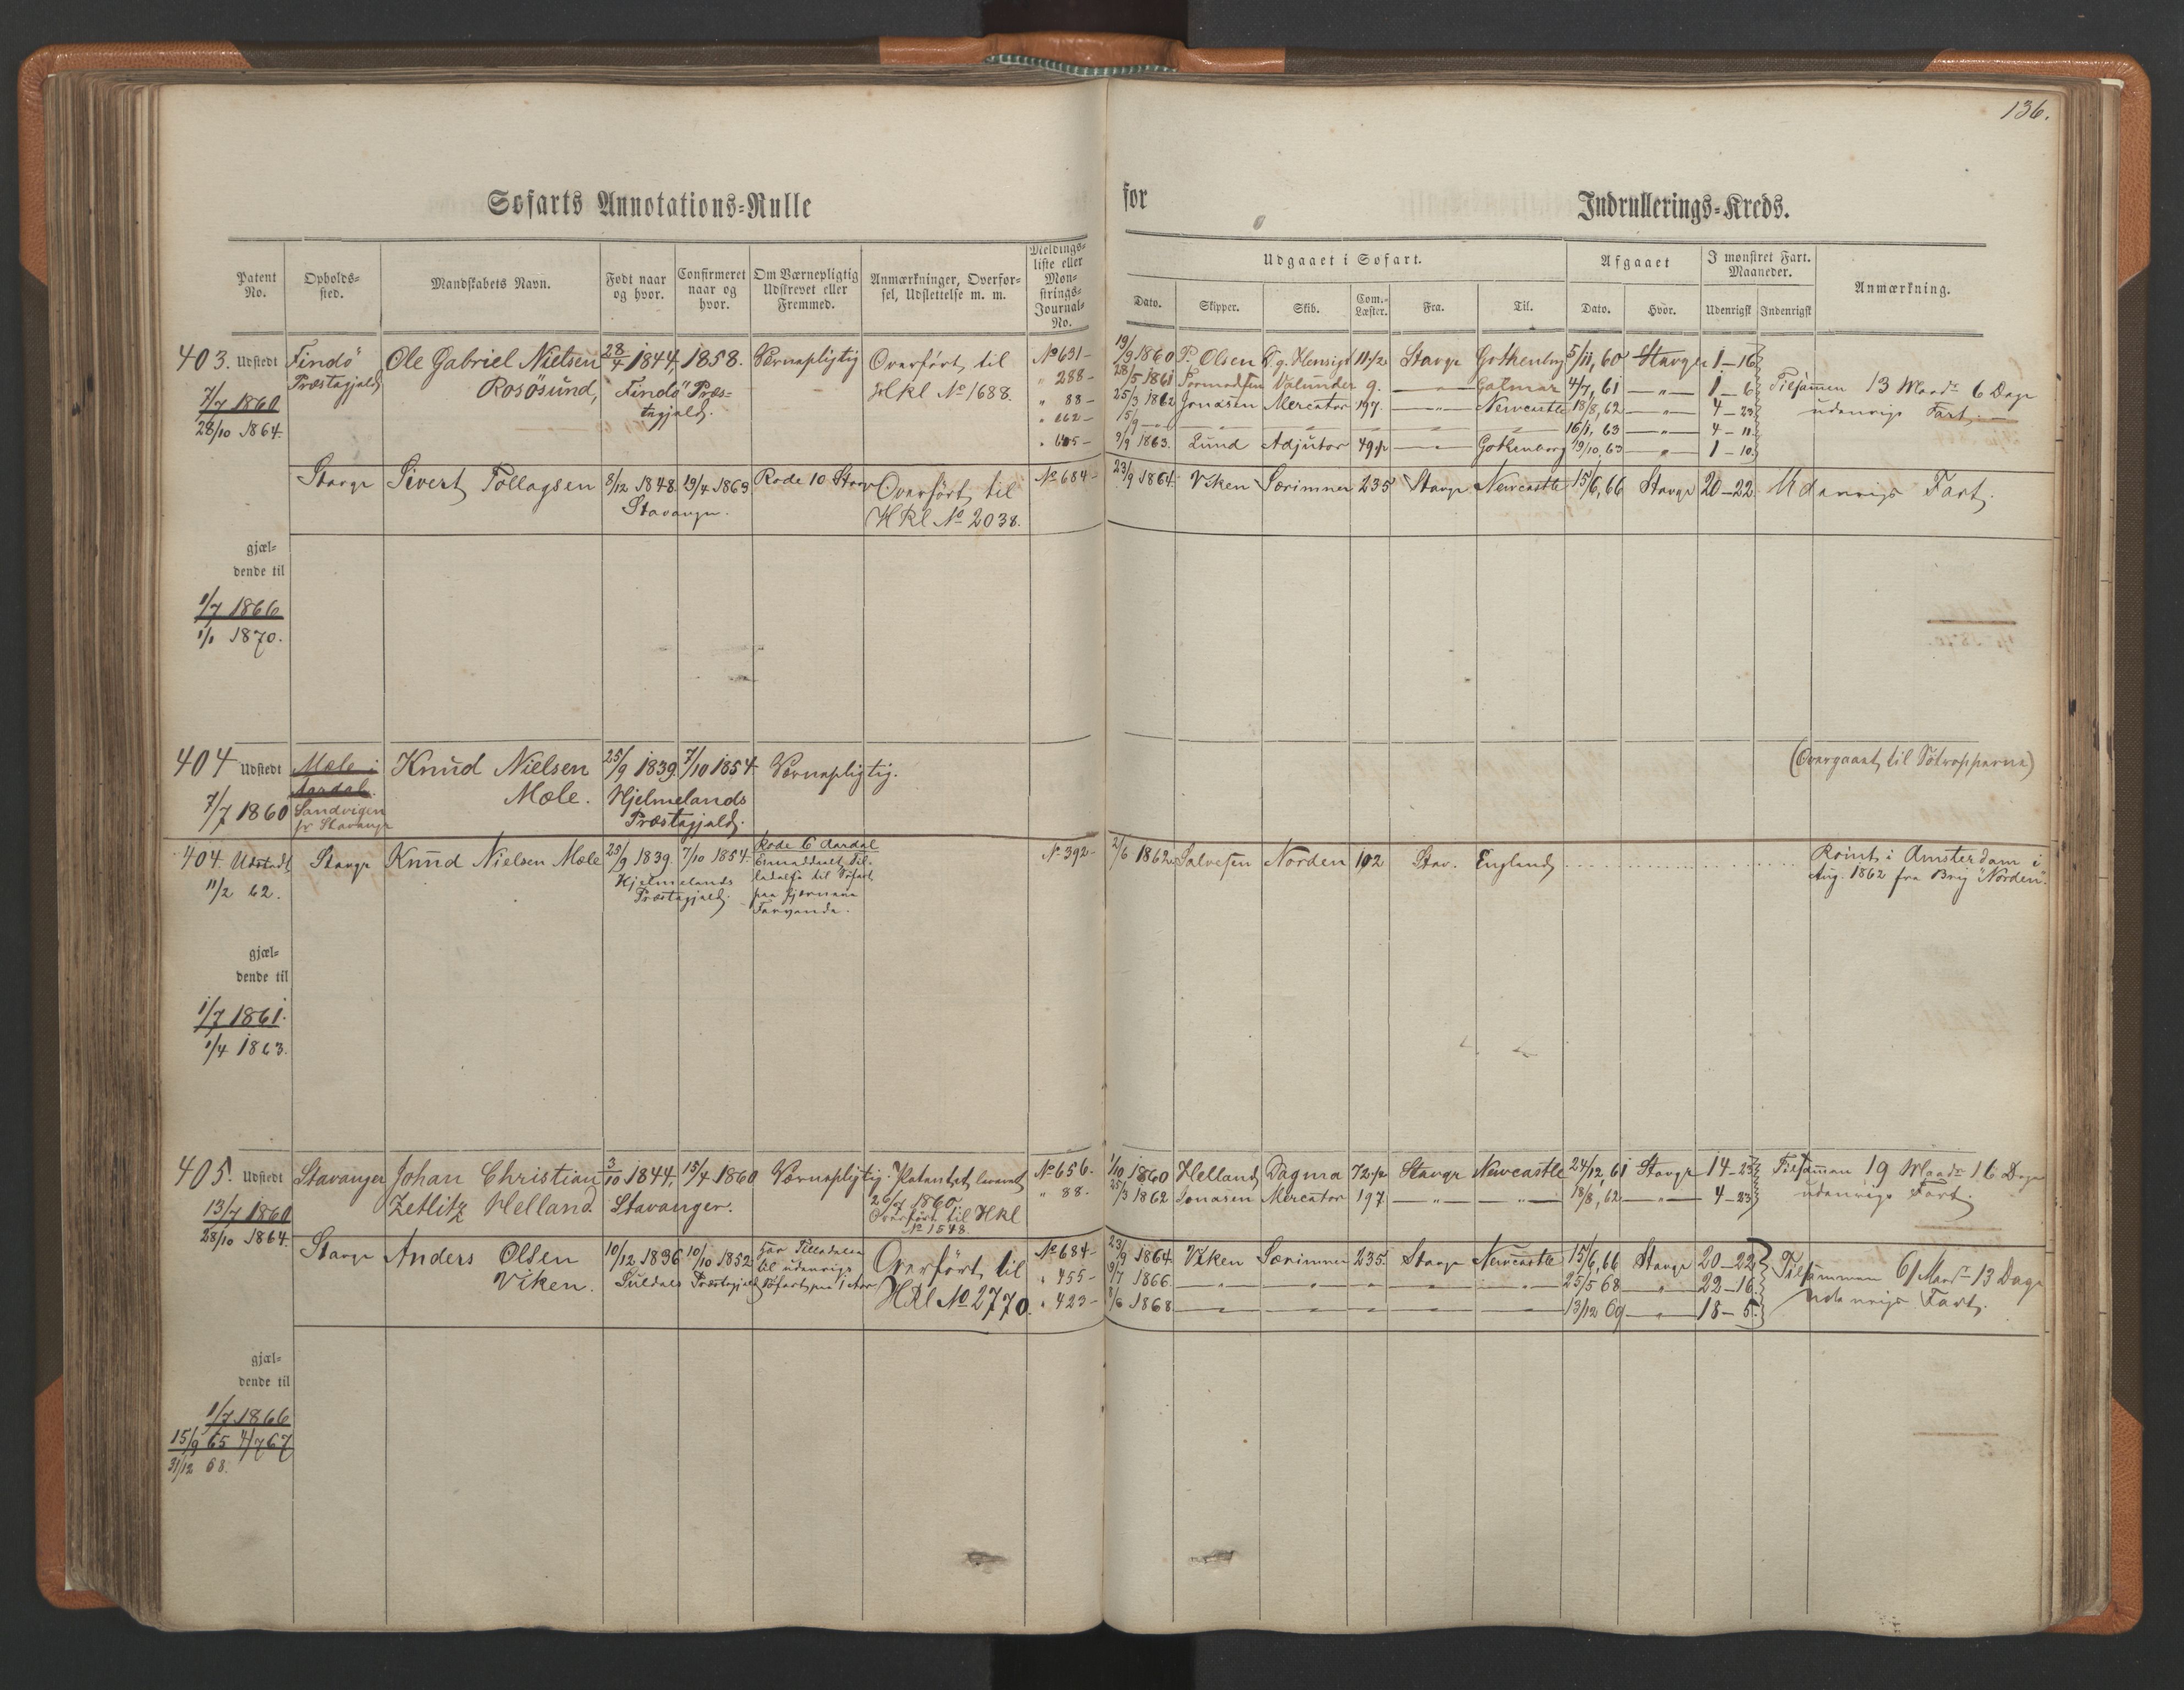 136.
Søfarts Annotations-Rulle
for
Indrullerings-Kreds.
Patent No.
Opholds-sted.
Mandskabets Navn.
Født naar og hvor.
Confirmeret naar og hvor.
Om Værnepligtig Udskrevet eller Fremmed.
Anmærkninger, Overførsel, Udslettelse m. m.
Meldings-liste eller Mønstrings-Journal-No.
Udgaaet i Søfart.
Afgaaet
I mønstret Fart. Maaneder.
Anmærkning.
Dato.
Skipper.
Skib.
Com.-Læster.
Fra.
Til.
Dato.
Hvor.
Udenrigsk
Indenrigsk
403. Udstedt Findö Ole Gabriel Nielsen 28/4 1844, 1858. Værnepligtig Overført til No 631 -
Præstegjæld Rosösund, Findö Præs- Hkl No 1688. " 288 -
7/7 1860 tegjæld. " 88 -
28/10 1864. " 662 -
" 605 -
19/9 1860 P. Olsen G. g. Hensigt 11 1/2 Stavgr Gothenborg 5/11, 60 Stavger 1 - 16
28/5 1861 Tormodsen Valunder 9. — " — 4/7, 61 — " — 1 - 6 Tilsammen 13 Maadr 6 Dage
25/3 1862 Jonasen Mercator 197. — " — Newcastle 18/8, 62 — " — 4 - 23 udenrigs Fart.
15/9 — " — 16/1, 63 — " — 4 - 11
9/9 1863. Lund Adjutor 49 1/2 — " — Gothenborg 19/10, 63 — " — 1 - 10
Stavgr Sivert Tollagsen 8/12 1848. 29/4 1863 Rode 10 Stavgr Overført til No 684 -
Stavanger. HKl No 2038.
23/9 1864. Viken Særimner 235 Stavgr Newcastle 15/6, 66 Stavgr 20 - 22 Udenrigs Fart.
gjæl-
dende til
1/7 1866
1/1 1870.
404 Udstedt Mæle i Knud Nielsen 25/9 1839. 7/10 1854 Værnepligtig.
Aardal. Mæle. Hjelmelands
7/7 1860 Sandvigen Præstegjæld.
pr Stavanger
(Overgaaet til Søtropperne)
404. Udstedt Stavgr Knud Nielsen Mæle 25/9 1839. 7/10 1854. Rode 6 Aardal No 392 -
11/2 62. Hjelmelands
Præstegjæld.
ladelse til Søfart
paa fjernere
Farvande.
2/6 1862 Salvesen Norden 102 Stav. England Römt i Amsterdam i
Aug. 1862 fra Brig "Norden".
gjæl-
dende til
1/7 1861.
1/4 1863.
405. Udstedt Stavanger Johan Christian 3/10 1844, 15/4 1860 Værnepligtig. Patentet leveret No 656.
Zetlitz Helland. Stavanger. 26/7 1860. " 88.
13/7 1860 Overført til Hkl
28/10 1864. No 1548.
1/10 1860 Helland Dagma 72 1/2 Stavgr Newcastle 24/12, 61 Stavgr 14 - 23 Tilsammen 19 Maadr 16 Dage
25/3 1862 Jonasen Mercator 197 — " — " — 18/8, 62 — " — 4 - 23 udenrigs Fart.
Stavgr Anders Olsen 10/12 1836 10/10 1852 har Tilladelse Overført til No 684 -
Viken. Suldals Præstegjæld til udenrigs HKl No 2770. " 455 -
Søfart paa 1 Aar " 423 -
23/9 1864. Viken Særimner 235. Stavgr Newcastle 15/6, 66 Stavgr 20 - 22
9/7 1866. — " — 25/5 68 — " — 22 - 16 Tilsammen 61 Maadr 13 Dage
8/6 1868 — " — 13/12 69 — " — 18 - 5 udenrigs Fart.
gjæl-
dende til
1/7 1866
15/9 65 4/7 67
31/12 68.